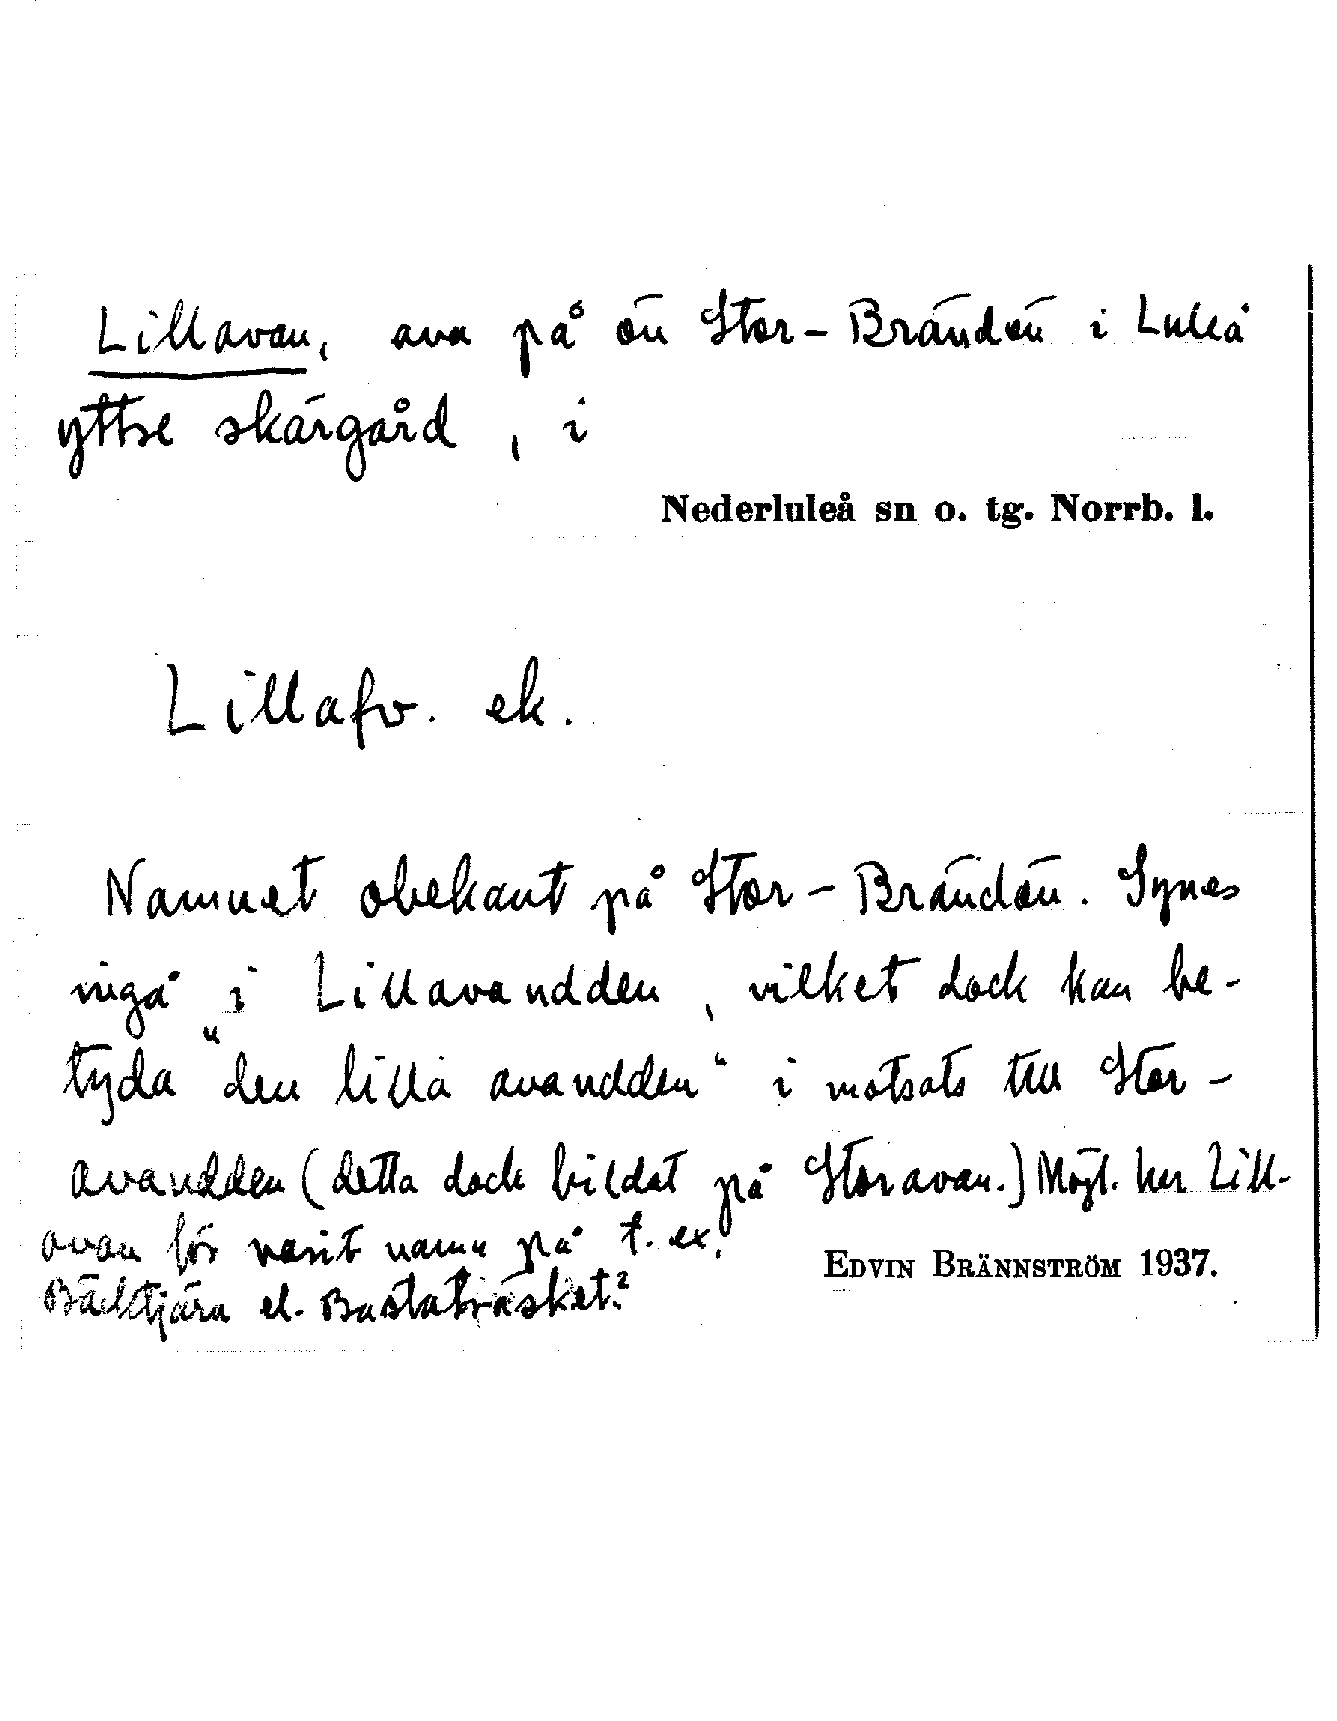 Lillavan, ava på ön Stor-Brändön i Luleå
yttre skärgård, i
Nederluleå sn o. tg. Norrb. l.
Lillafv. ek.
Namnet obekant på Stor-Brändön. Synes
ingå i Lillavaudden, vilket dock kan be-
tyda "den lilla avaudden" i motsats till Stor-
avaudden (detta dock bildat på Storavan.) Möjl. har Lill-
avan förr varit namn på t. ex.
Bäcktjärn el. Bastaträsket?
EDVIN BRÄNNSTRÖM 1937.